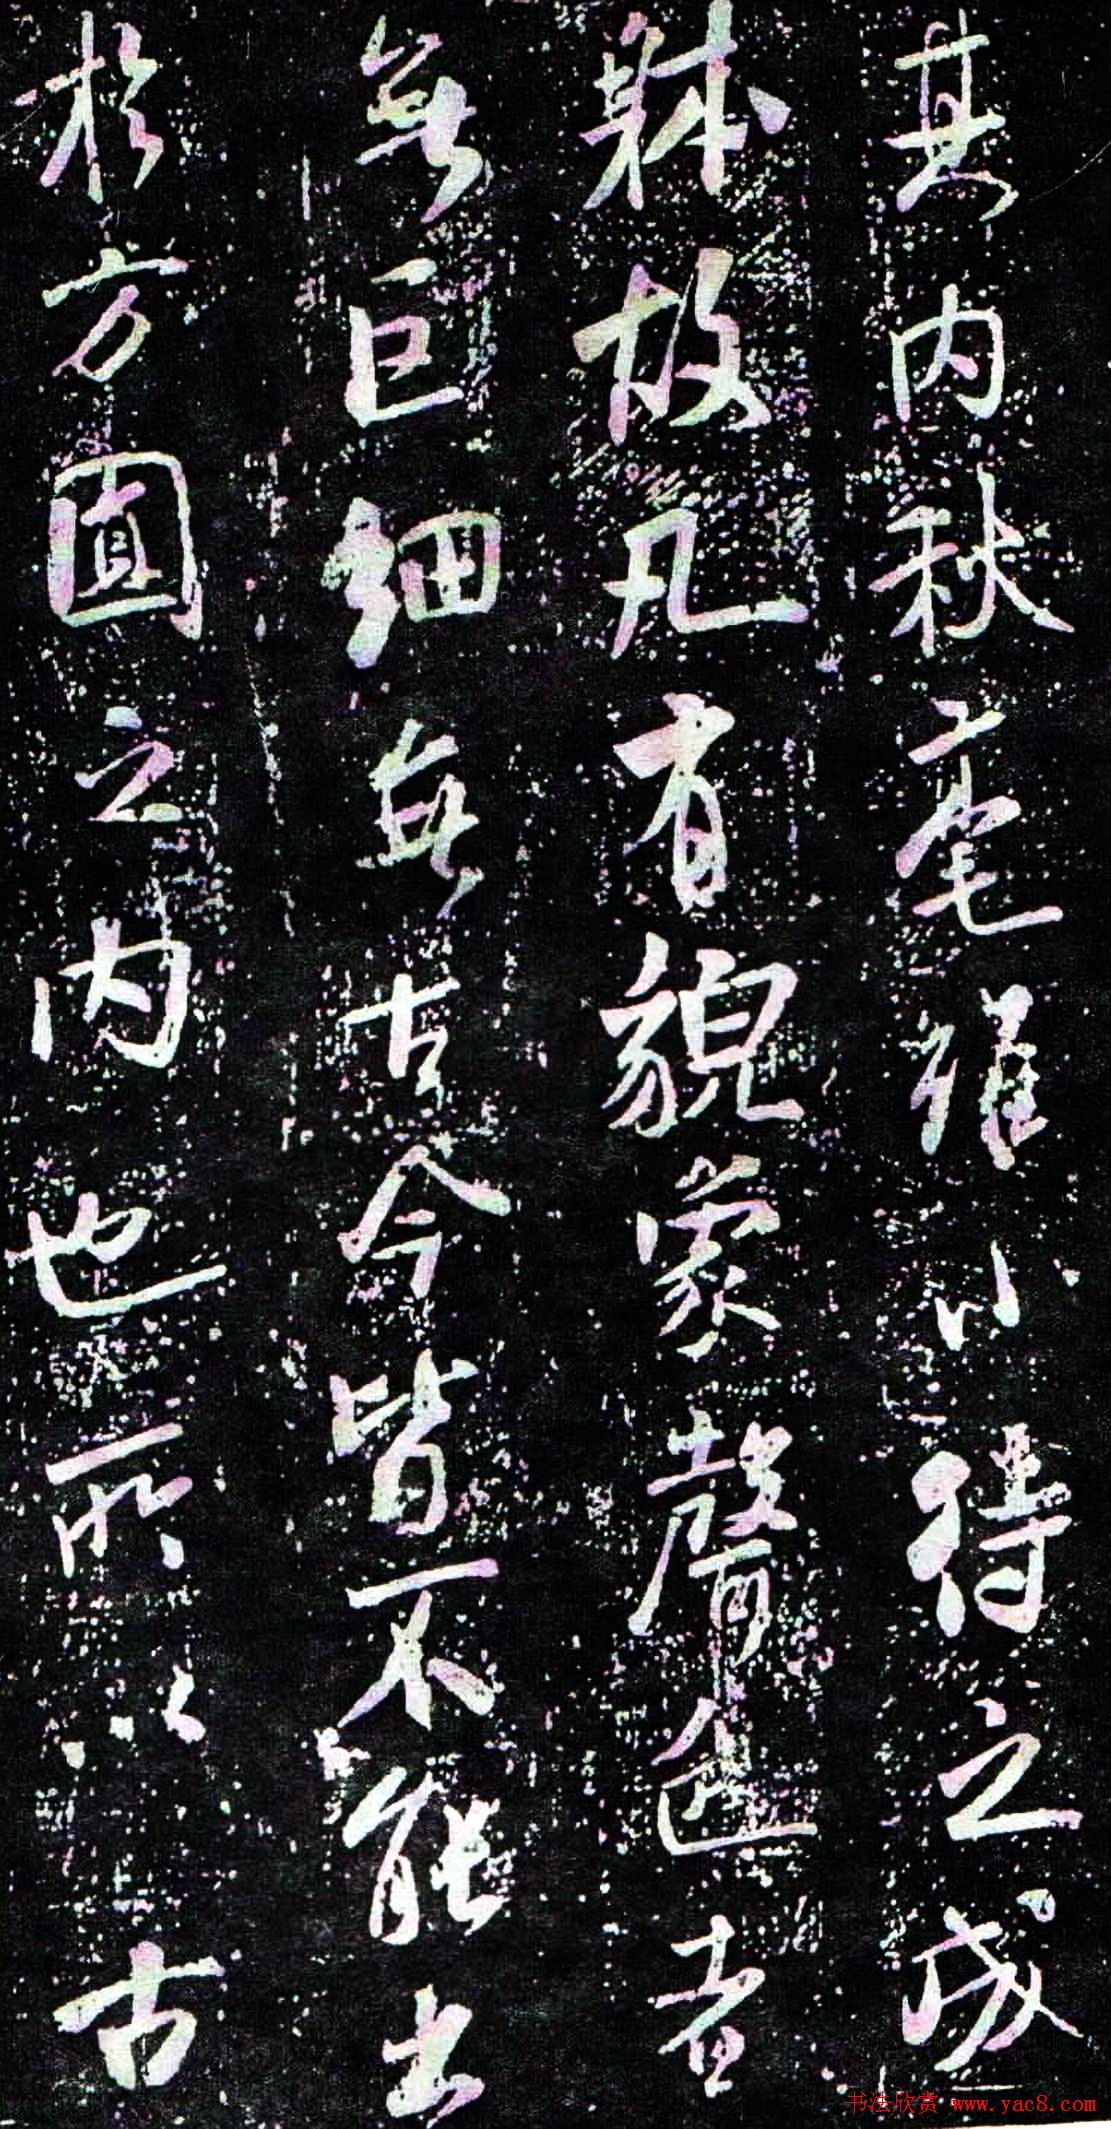 其内秋毫雖小得之成
體故凡有貌象聲色者
無巨細無古今皆不能出
於方圓之内也所以古
书法欣赏 www.yac8.com